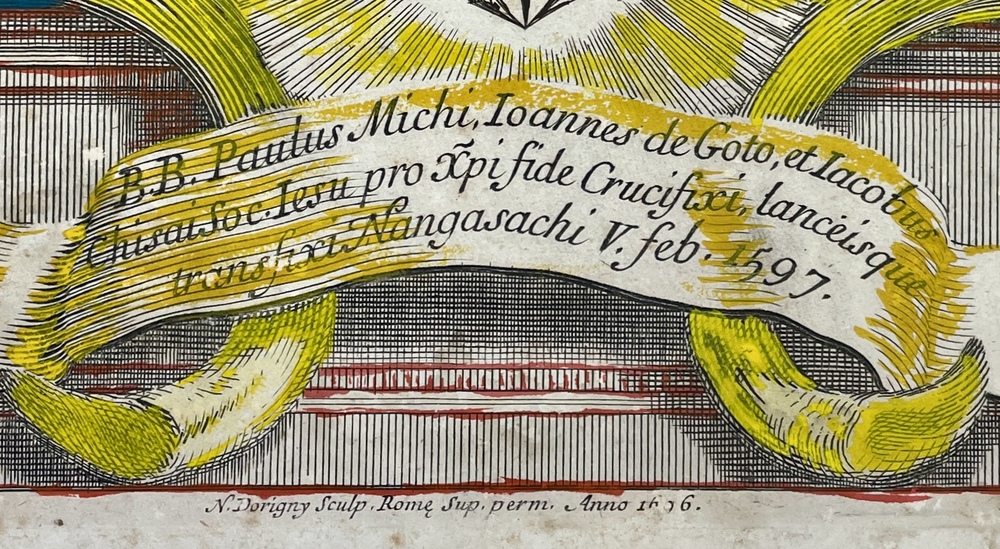 B.B. Paulus Michi, Ioannes de Goto, et Iacobus
chisai Soc. Iesu pro Xp̃i fide Crucifixi, lanceisque
transfixi Nangasachi V. feb. 1597.
N. Dorigny Sculp. Romę Sup. perm. Anno